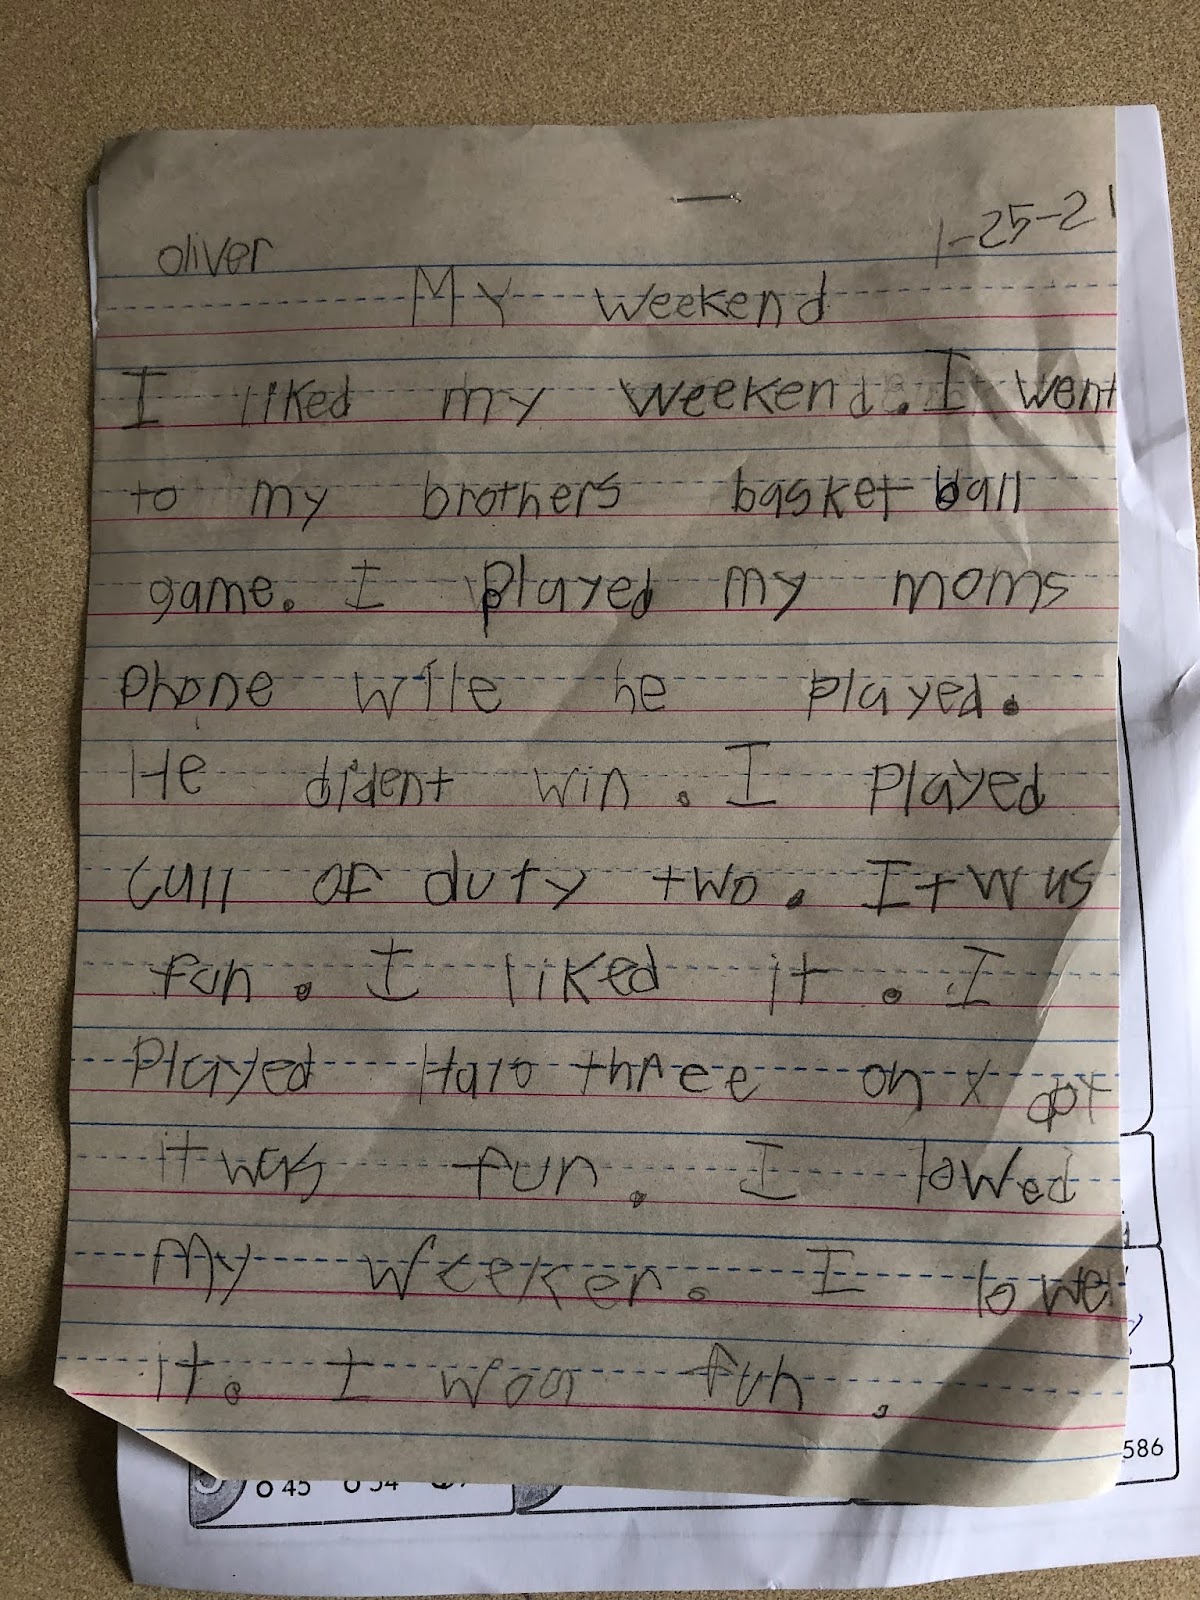 oliver 1-25-21
My weekend
I liked my weekend. I went
to my brothers basket ball
game. I played my moms
phone wile he played.
He dident win. I played
Call of duty two. It was
fun. I liked it. I
played Halo three on x
it was fun. I lowed
My weeker. I lowe
it. I woa fun.
586
45 54